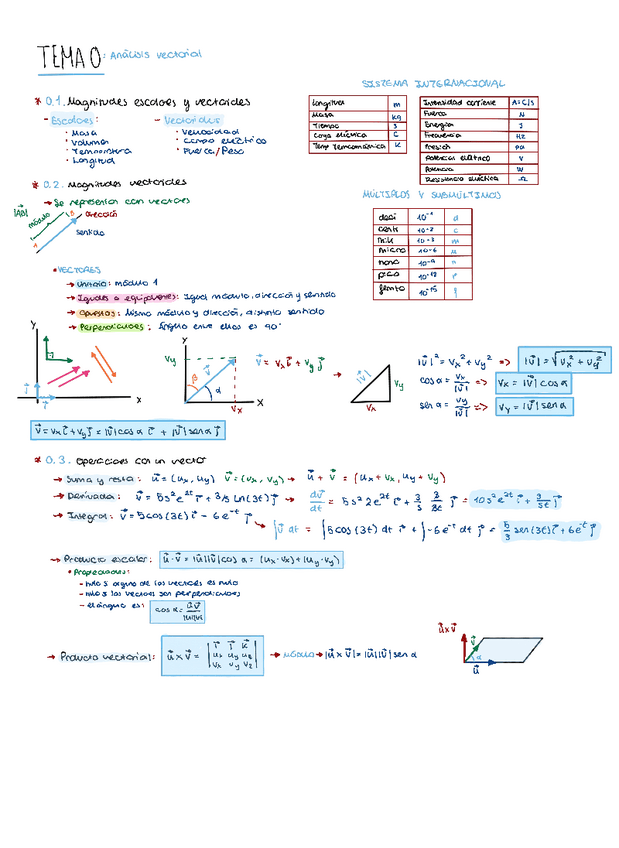 TEMA 0: Análisis vectorial
SISTEMA INTERNACIONAL
Longitud m
Masa kg
Tiempo s
Carga eléctrica C
Temp termodinámica K
Intensidad corriente A=C/s
Fuerza N
Energía J
Frecuencia Hz
Presión Pa
Potencial eléctrico V
Potencia W
Resistencia eléctrica Ω
* 0.1. Magnitudes escalares y vectoriales
- Escalares:
· Masa
· Volumen
· Temperatura
· Longitud
- Vectoriales
· Velocidad
· Campo eléctrico
· Fuerza/Peso
* 0.2. Magnitudes vectoriales
→ Se representan con vectores
|AB|
módulo
A
B
dirección
sentido
MÚLTIPLOS Y SUBMÚLTIPLOS
deci 10⁻¹ d
centi 10⁻² c
mili 10⁻³ m
micro 10⁻⁶ μ
nano 10⁻⁹ n
pico 10⁻¹² p
femto 10⁻¹⁵ f
• VECTORES
→ Unitario: módulo 1
→ Iguales o equipolentes: Igual módulo, dirección y sentido
→ Opuestos: Mismo módulo y dirección, distinto sentido
→ Perpendiculares: Ángulo entre ellos es 90°
Y
X
Y
Vy
β
α
Vx
X
v⃗ = vx i⃗ + vy j⃗
|v⃗|
Vy
Vx
|v⃗|² = vx² + vy² => |v⃗| = √(vx² + vy²)
cos α = vx/|v⃗| => vx = |v⃗| cos α
sen α = vy/|v⃗| => vy = |v⃗| sen α
v⃗ = vx i⃗ + vy j⃗ = |v⃗| cos α i⃗ + |v⃗| sen α j⃗
* 0.3. Operaciones con un vector
→ Suma y resta: u⃗ = (ux, uy) v⃗ = (vx, vy) → u⃗ + v⃗ = (ux + vx, uy + vy)
→ Derivada: v⃗ = 5s²e²ᵗ i⃗ + 3/5 ln(3t) j⃗ → dv⃗/dt = 5s² 2e²ᵗ i⃗ + 3/5 3/3t j⃗ = 10s²e²ᵗ i⃗ + 3/5t j⃗
→ Integral: v⃗ = 5cos(3t) i⃗ - 6e⁻ᵗ j⃗
→ ∫v⃗ dt = ∫5cos(3t) dt i⃗ + ∫-6e⁻ᵗ dt j⃗ = 5/3 sen(3t) i⃗ + 6e⁻ᵗ j⃗
→ Producto escalar: u⃗·v⃗ = |u⃗||v⃗| cos α = (ux·vx) + (uy·vy)
• Propiedades:
- nulo si alguno de los vectores es nulo
- nulo si los vectores son perpendiculares
- el ángulo es: cos α = u⃗·v⃗/|u⃗||v⃗|
→ Producto vectorial: u⃗ x v⃗ = | i⃗ j⃗ k⃗
ux uy uz
vx vy vz | → módulo → |u⃗ x v⃗| = |u⃗||v⃗| sen α
u⃗ x v⃗
v⃗
α
u⃗